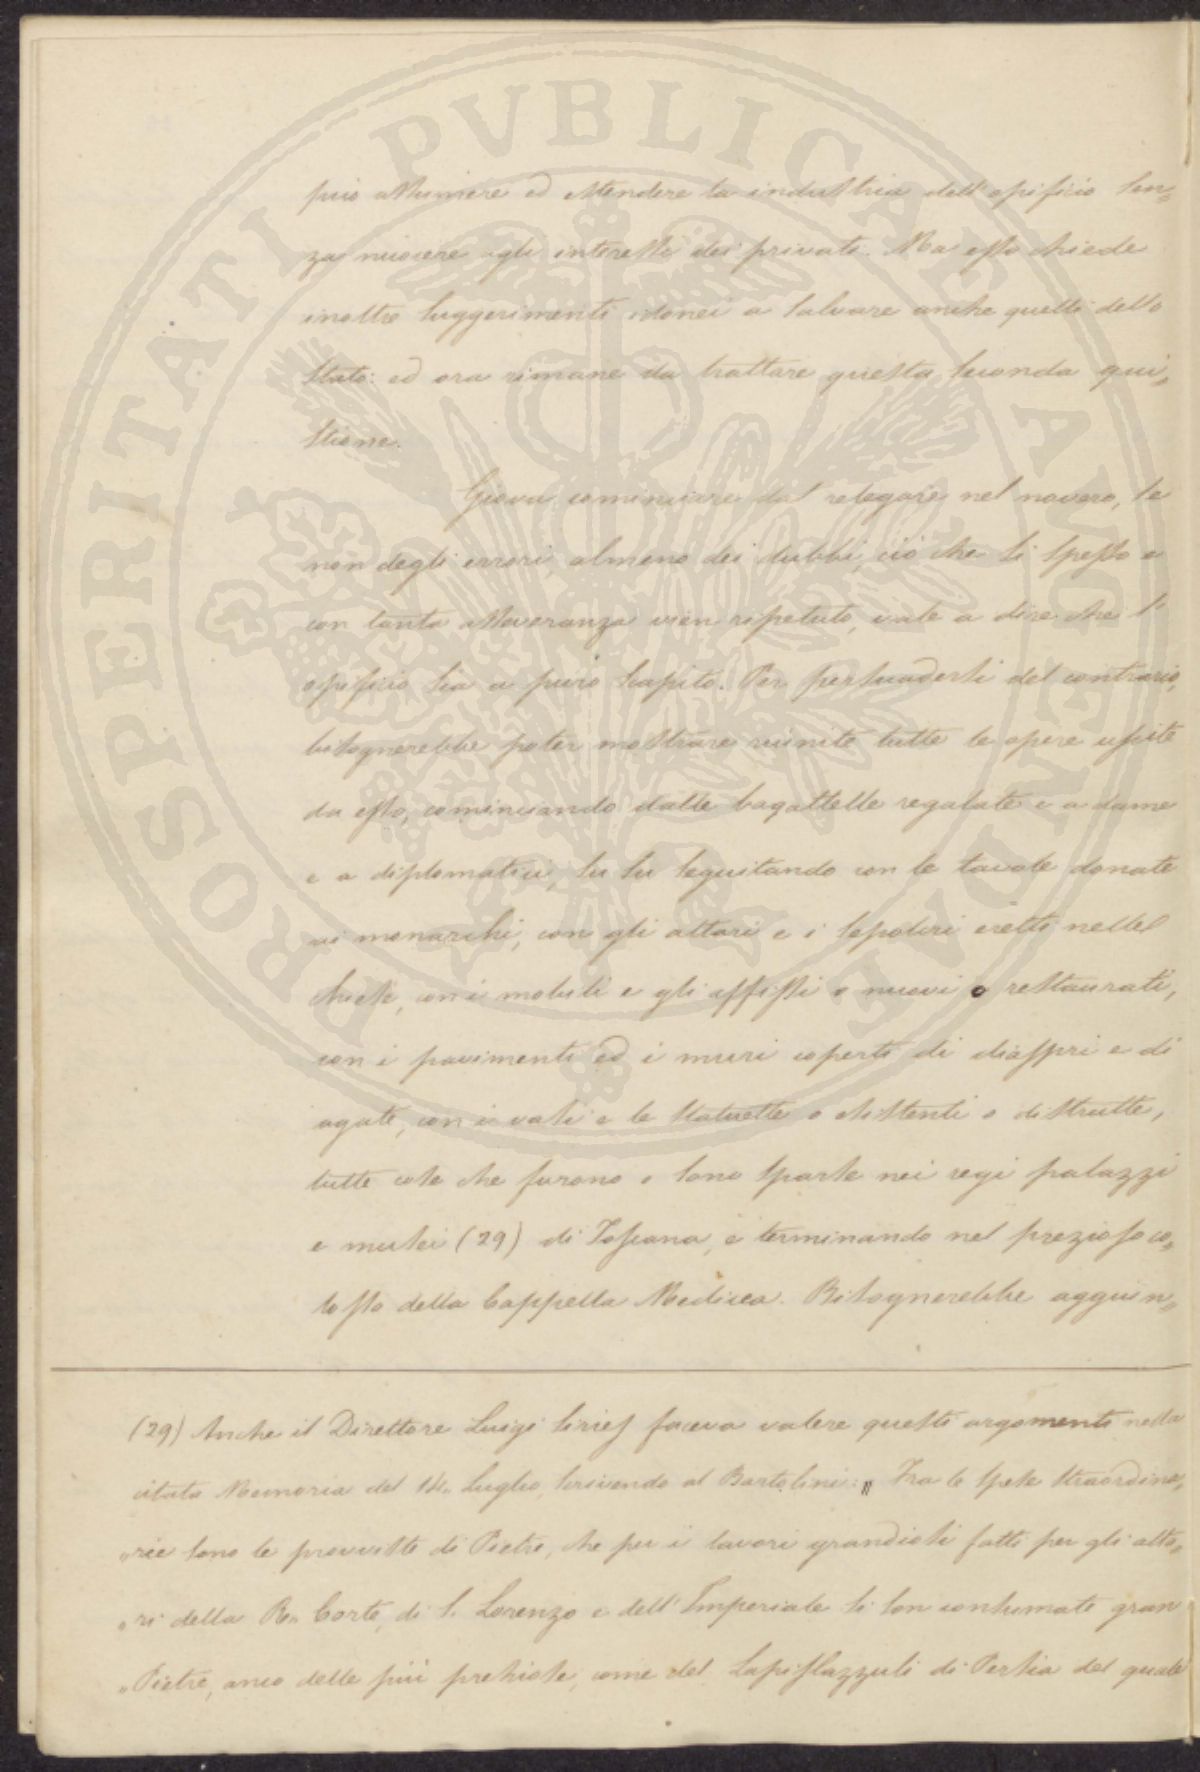 può assumere ed estendere la industria dell'opificio sen„
za nuocere agli interessi dei privati. Ma esso chiede
inoltre suggerimenti idonei a salvare anche quelli dello
Stato: ed ora rimane da trattare questa seconda qui„
stione.
Giova cominciare dal relegare nel novero, se
non degli errori, almeno dei dubbi, ciò che sì spesso e
con tanta asseveranza vien ripetuto, vale a dire che l'
opificio sia a puro scapito. Per persuadersi del contrario,
bisognerebbe poter mostrare riunite tutte le opere uscite
da esso, cominciando dalle bagattelle regalate e a dame
e a diplomatici, su su seguitando con le tavole donate
ai monarchi, con gli altari e i sepolcri eretti nelle
chiese, con i mobili e gli affissi o nuovi o restaurati,
con i pavimenti ed i muri coperti di diaspri e di
agate, con i vasi e le statuette o esistenti o distrutte,
tutte cose che furono o sono sparse nei regi palazzi
e musei (29) di Toscana, e terminando nel prezioso co„
losso della Cappella Medicea. Bisognerebbe aggiun„
(29) Anche il Direttore Luigi Siries faceva valere questi argomenti nella
citata Memoria del 14. Luglio, scrivendo al Bartolini: „ Fra le spese straordina„
„rie sono le provviste di Pietre, che per i lavori grandiosi fatti per gli alta„
„ri della R. Corte, di S. Lorenzo e dell'Imperiale si son consumate gran
„Pietre, anco delle più preziose, come del Lapislazzuli di Persia del quale
PROSPERITATI PVBLICAE AVGENDAE